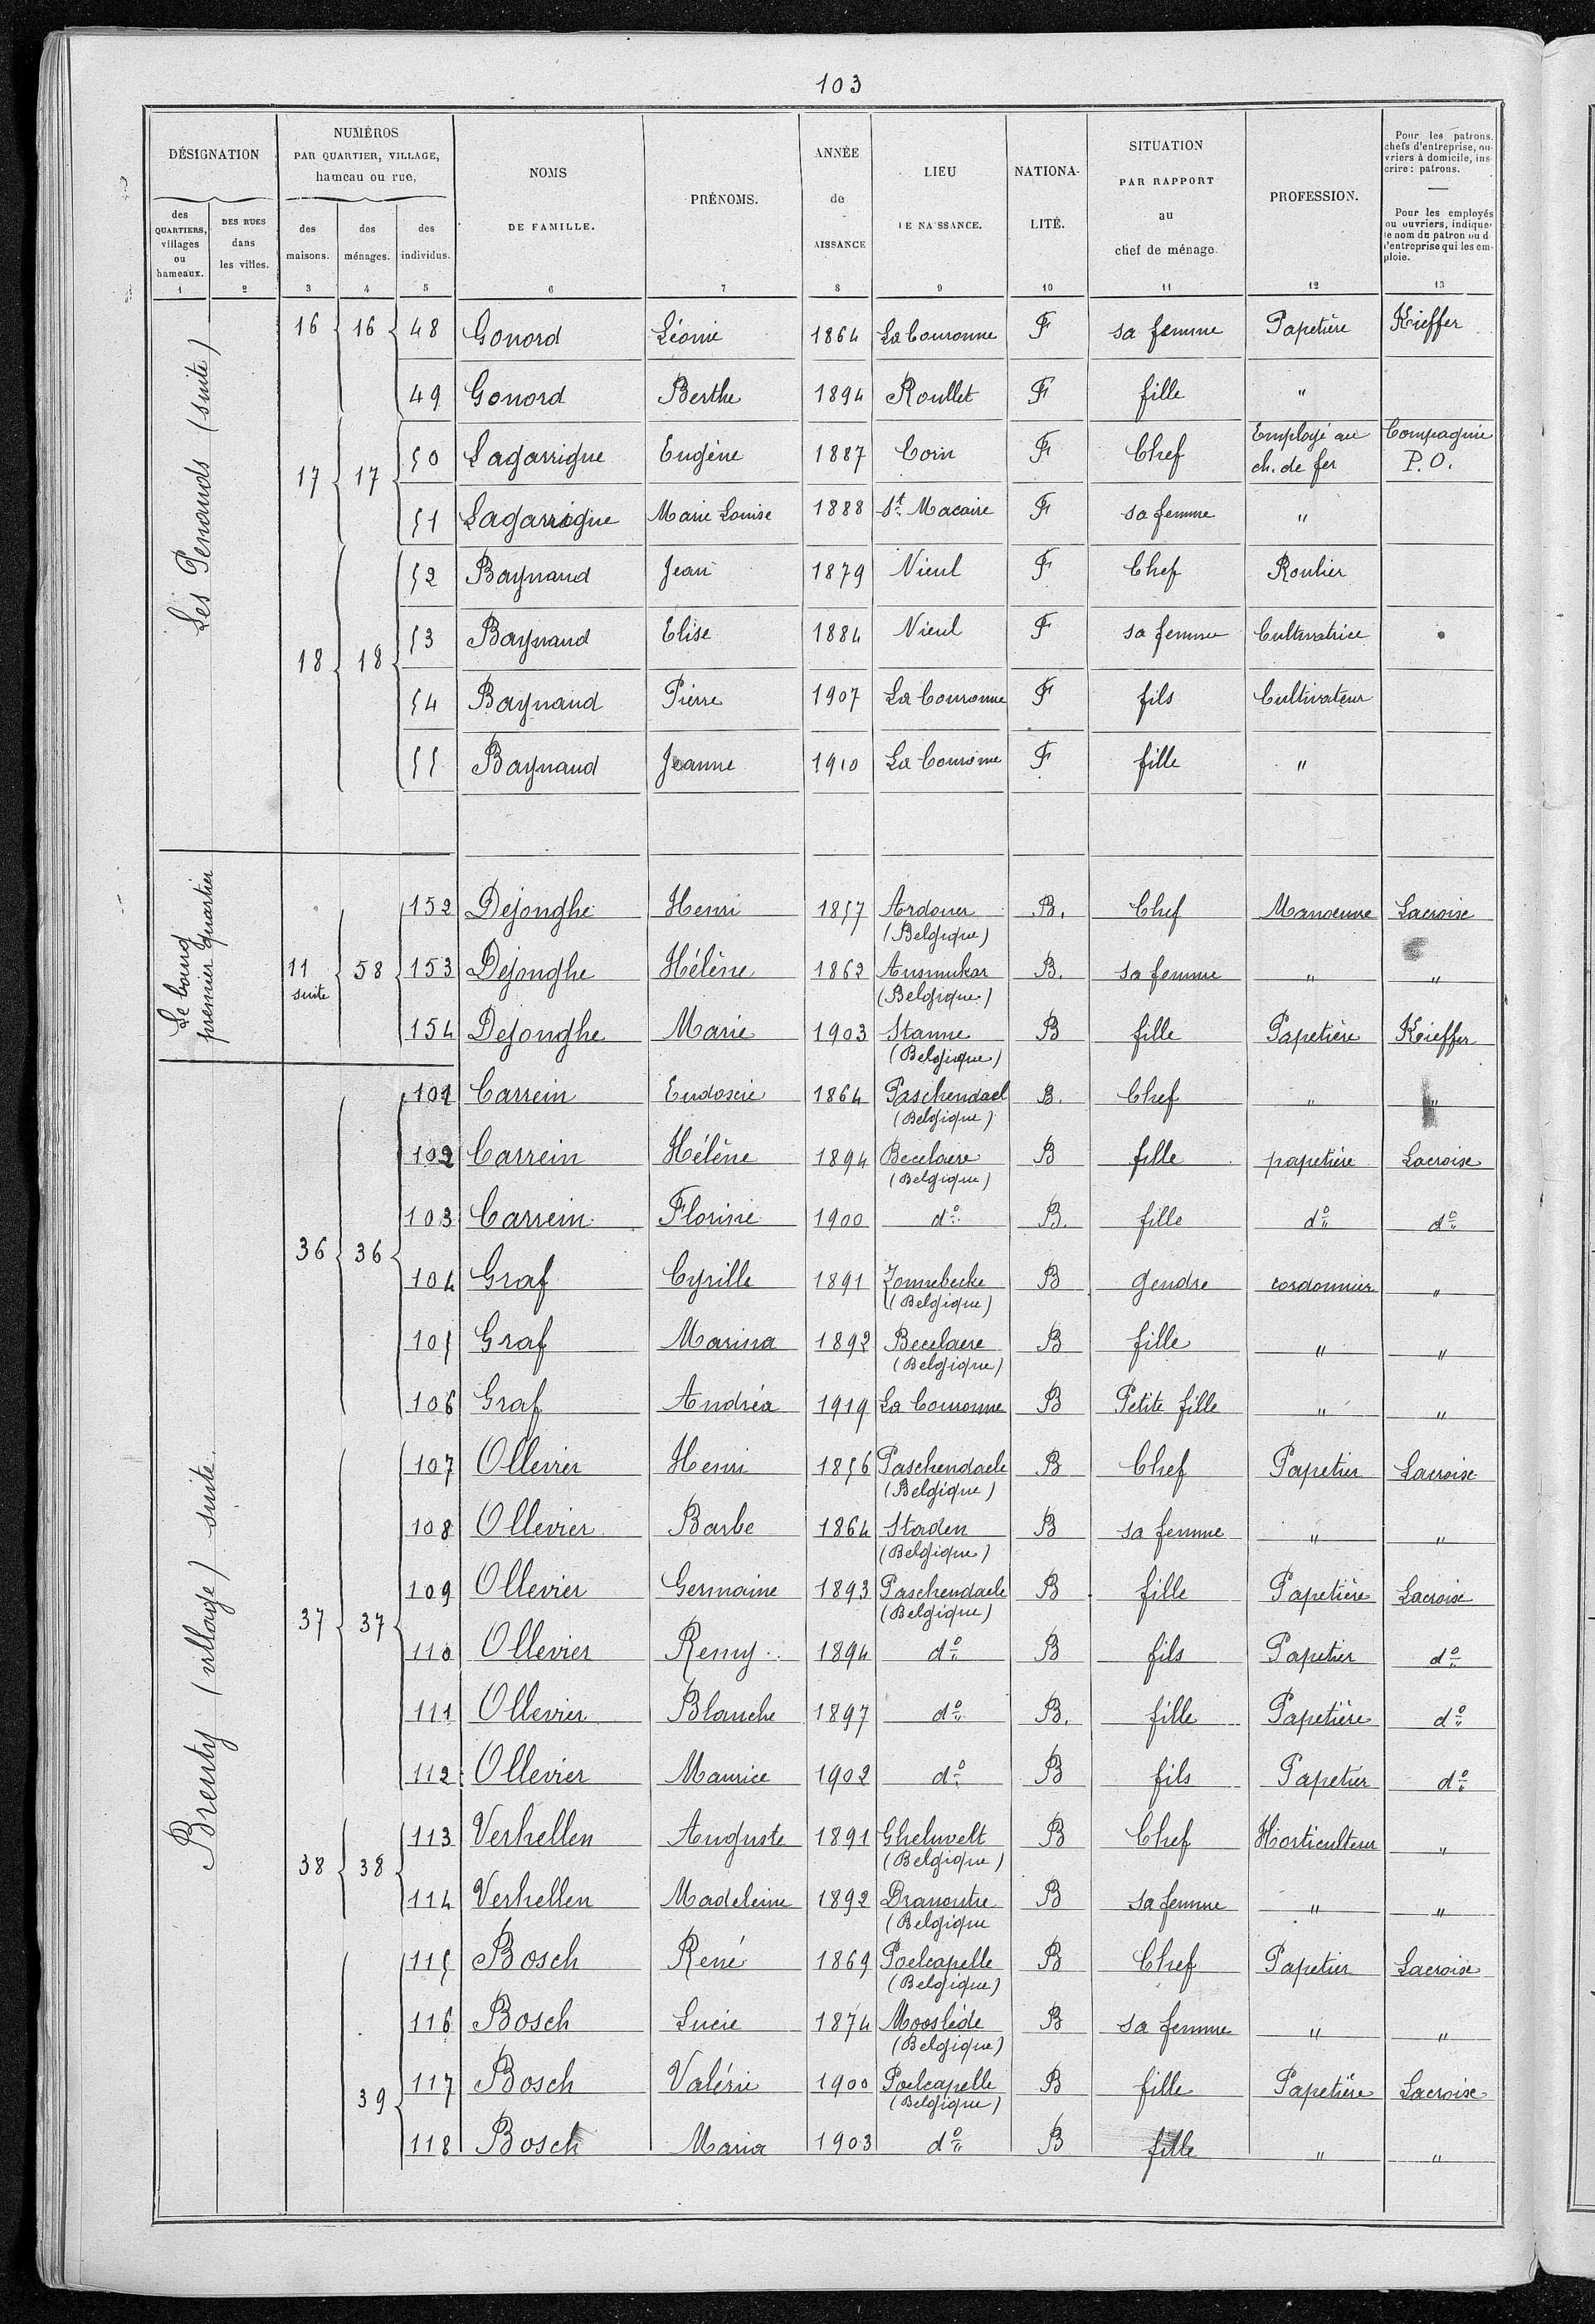 103
DÉSIGNATION
NUMÉROS
PAR QUARTIER, VILLAGE,
hameau ou rue.
NOMS
DE FAMILLE.
PRÉNOMS.
ANNÉE
de
AISSANCE
LIEU
DE NAISSANCE.
NATIONA-
LITÉ.
SITUATION
PAR RAPPORT
au
chef de ménage.
PROFESSION.
Pour les patrons,
chefs d'entreprise, ou-
vriers à domicile, ins-
crire : patrons.
Pour les employés
ou ouvriers, indiquer
le nom du patron ou d
l'entreprise qui les em-
ploie.
des
QUARTIERS,
villages
ou
hameaux.
DES RUES
dans
les villes.
des
maisons.
des
ménages.
des
individus.
1 2 3 4 5 6 7 8 9 10 11 12 13
Les Penauds (suite)
16 16 48 Gonord Léonie 1864 La Couronne F sa femme Papetière Kieffer
49 Gonord Berthe 1894 Roullet F fille "
17 17 50 Lagarrigue Eugène 1887 Corn F Chef Employé au ch. de fer Compagnie P.O.
51 Lagarrigue Marie Louise 1888 St Macaire F sa femme "
52 Baynaud Jean 1879 Nieul F Chef Roulier
18 18 53 Baynaud Elise 1884 Nieul F sa femme Cultivatrice
54 Baynaud Pierre 1907 La Couronne F fils Cultivateur
55 Baynaud Jeanne 1910 La Couronne F fille "
Le bourg
premier quartier
152 Dejonghe Henri 1857 Ardoner B. Chef Manoeuvre Lacroise
(Belgique)
11 suite 58 153 Dejonghe Hélène 1862 B. sa femme " "
(Belgique)
154 Dejonghe Marie 1903 Stanne B fille Papetière Kieffer
(Belgique)
Breuty (village) suite.
101 Carrein Eudoxie 1864 Paschendael B. Chef " "
(Belgique)
102 Carrein Hélène 1894 Becelaere B fille papetière Lacroise
(Belgique)
103 Carrein Florine 1900 do B. fille do do
36 36 104 Graf Cyrille 1891 Zonnebecke B gendre cordonnier "
(Belgique)
105 Graf Marina 1892 Becelaere B fille " "
(Belgique)
106 Graf Andréa 1919 La Couronne B Petite fille " "
107 Ollevier Henri 1856 Paschendaele B Chef Papetier Lacroise
(Belgique)
108 Ollevier Barbe 1864 Staden B sa femme " "
(Belgique)
37 37 109 Ollevier Germaine 1893 Paschendaele B fille Papetière Lacroise
(Belgique)
110 Ollevier Remy 1894 do B fils Papetier do
111 Ollevier Blanche 1897 do B. fille Papetière do
112 Ollevier Maurice 1902 do B fils Papetier do
38 38 113 Verhellen Auguste 1891 Gheluvelt B Chef Horticulteur "
(Belgique)
114 Verhellen Madeleine 1892 Dranoutre B sa femme " "
(Belgique
115 Bosch René 1869 Poelcapelle B Chef Papetier Lacroise
(Belgique)
116 Bosch Lucie 1874 Mooslède B sa femme " "
(Belgique)
39 117 Bosch Valérie 1900 Poelcapelle B fille Papetière Lacroise
(Belgique)
118 Bosch Maria 1903 do B fille " "